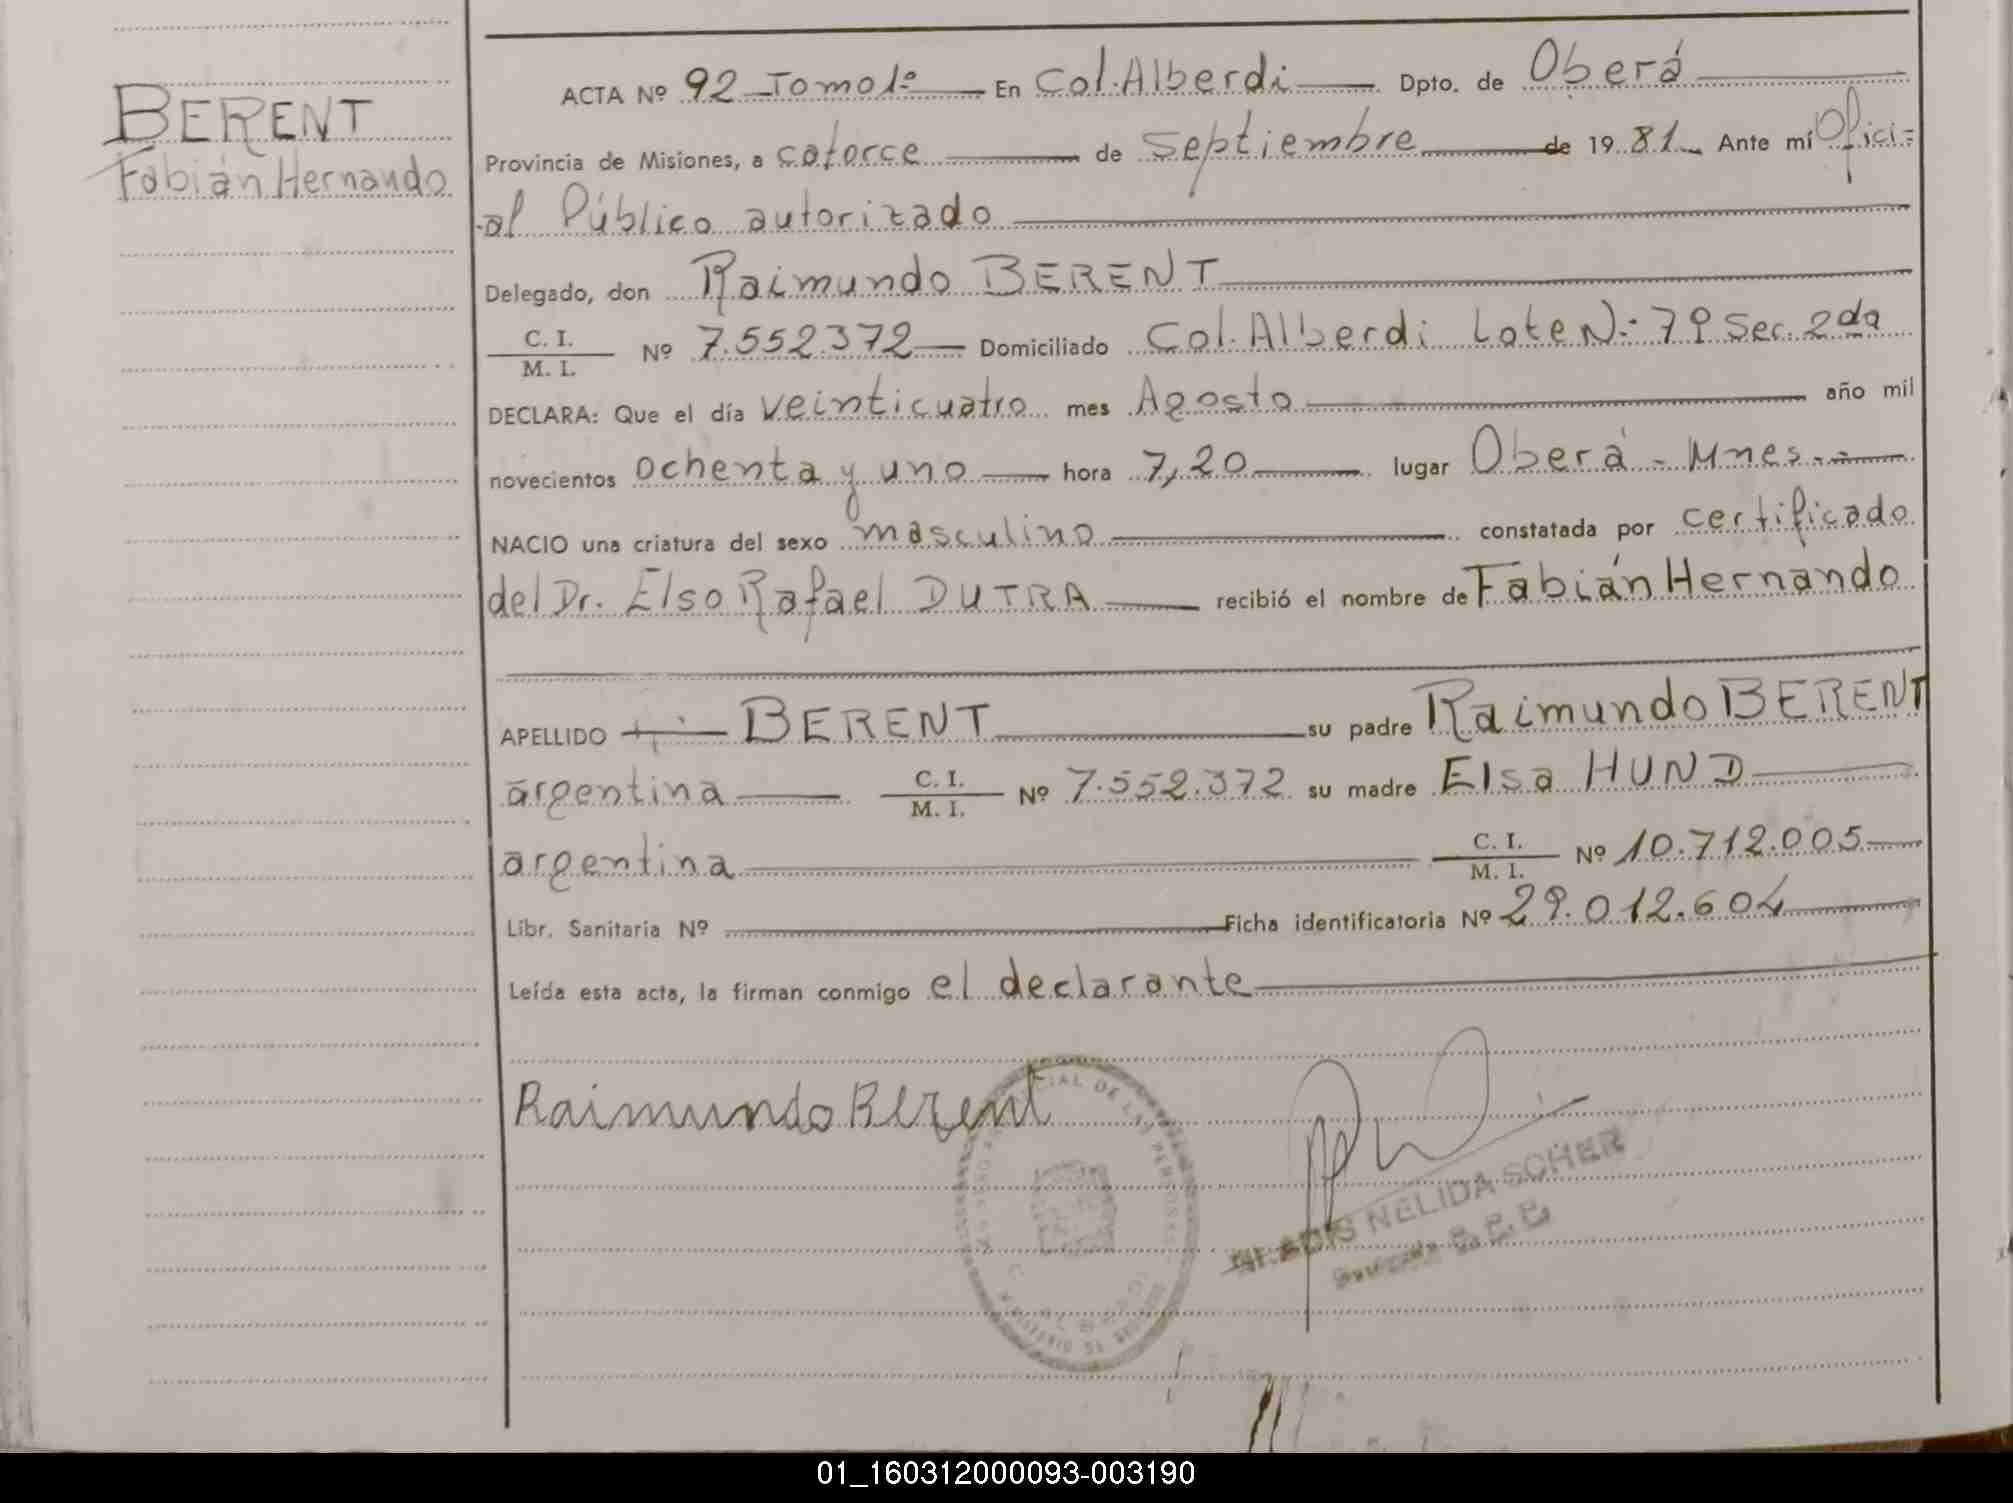 BERENT
Fabián Hernando
ACTA Nº 92 Tomo 1º En Col. Alberdi Dpto. de Oberá
Provincia de Misiones, a catorce de Septiembre de 19 81 Ante mí Ofici=
-al Público autorizado
Delegado, don Raimundo BERENT
C. I.
M. I. Nº 7.552.372 Domiciliado Col. Alberdi Lote N: 79 Sec. 2da
DECLARA: Que el día veinticuatro mes Agosto año mil
novecientos ochenta y uno hora 7,20 lugar Oberá - Mnes.
NACIO una criatura del sexo masculino constatada por certificado
del Dr. Elso Rafael DUTRA recibió el nombre de Fabián Hernando
APELLIDO BERENT su padre Raimundo BERENT
argentina C. I. M. I. Nº 7.552.372 su madre Elsa HUND
argentina C. I. M. I. Nº 10.712.005
Libr. Sanitaria Nº Ficha identificatoria Nº 29.012.604
Leída esta acta, la firman conmigo el declarante
Raimundo Berent
NELIDA SCHER
01_160312000093-003190